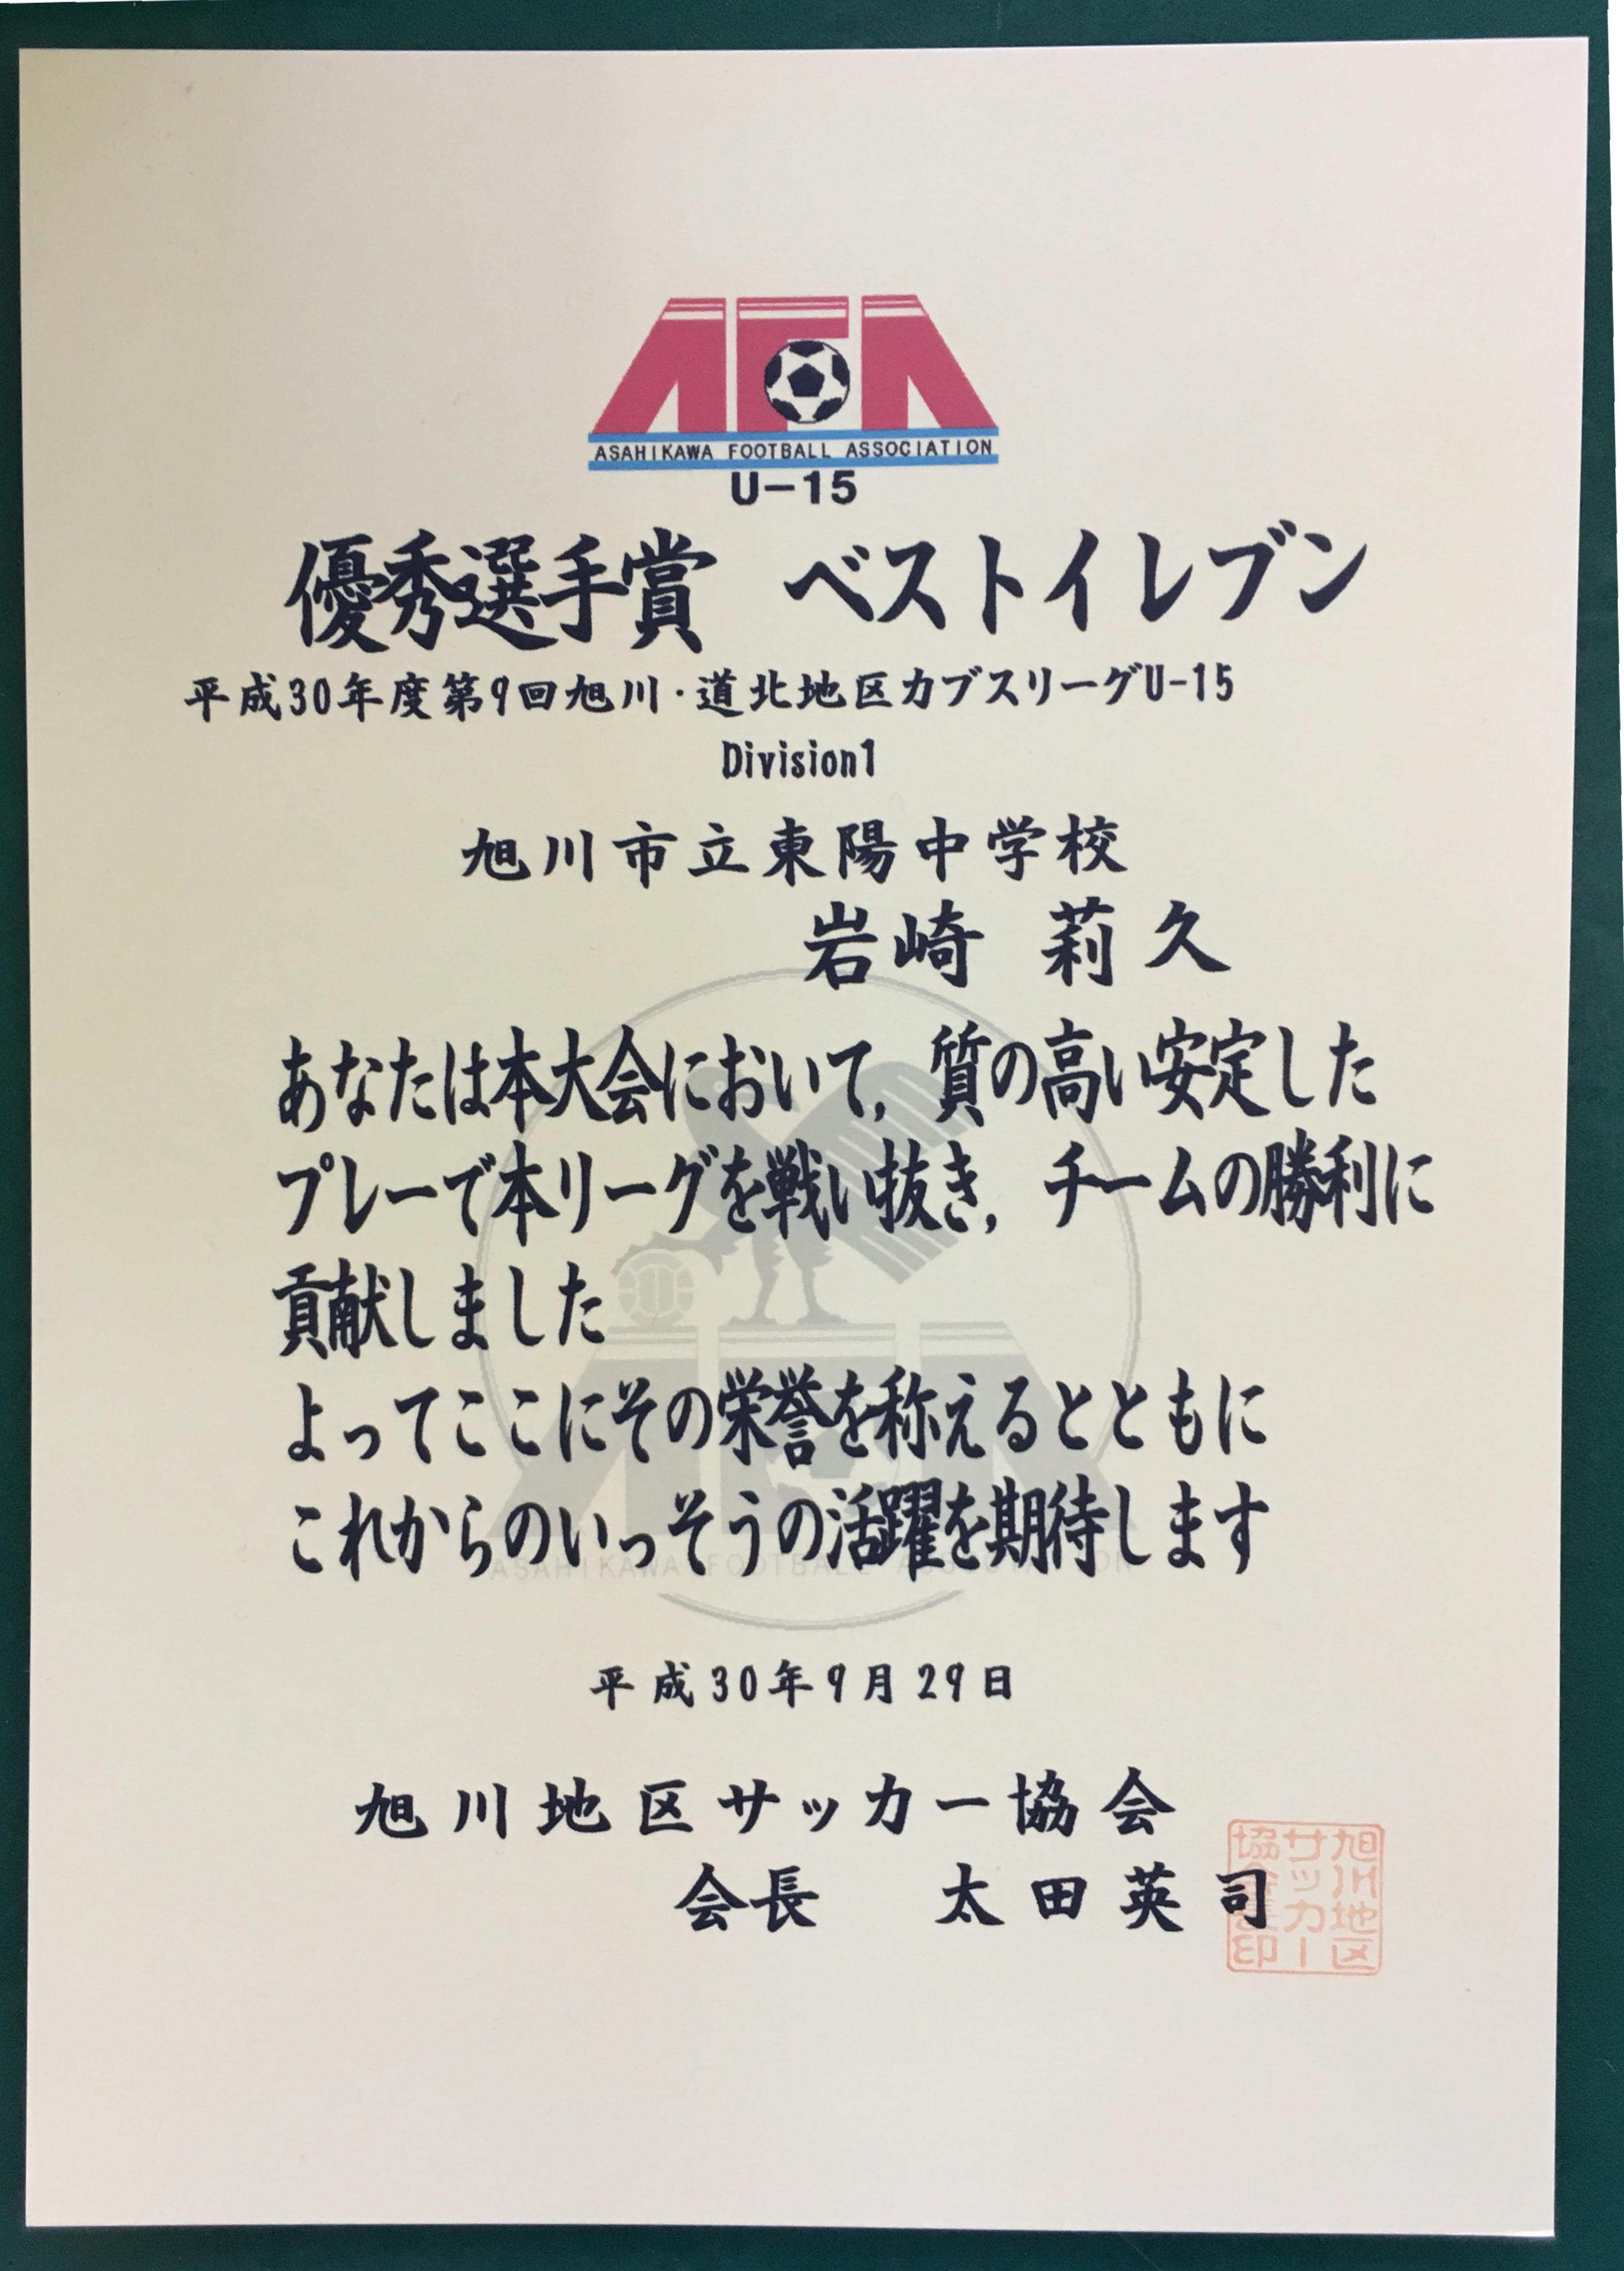 AFA
ASAHIKAWA FOOTBALL ASSOCIATION
U-15
優秀選手賞 ベストイレブン
平成30年度第9回旭川・道北地区カブスリーグU-15
Division1
旭川市立東陽中学校
岩崎 莉久
あなたは本大会において,質の高い安定した
プレーで本リーグを戦い抜き,チームの勝利に
貢献しました
よってここにその栄誉を称えるとともに
これからのいっそうの活躍を期待します
AFA
ASAHIKAWA FOOTBALL ASSOCIATION
平成30年9月29日
旭川地区サッカー協会
会長 太田英司
旭川地区
サッカー